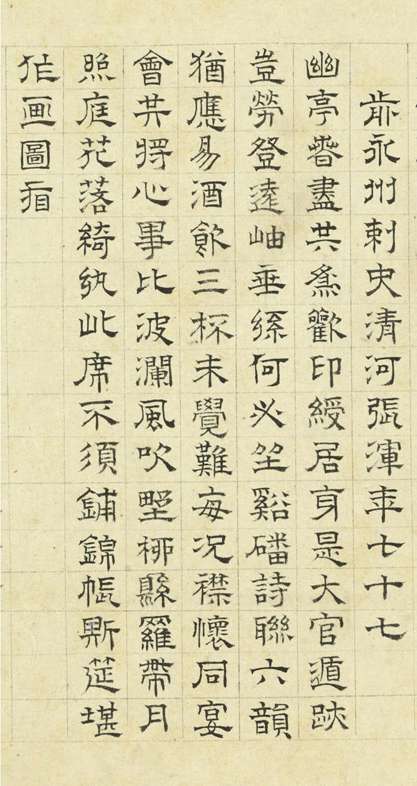 前永州刺史清河張渾年七十七
幽亭春盡共為歡印綬居身是大官遁跡
豈勞登遠岫垂絲何必坐谿磻詩聯六韻
猶應易酒飲三杯未覺難每況襟懷同宴
會共將心事比波瀾風吹野柳縣羅帶月
照庭花落綺紈此席不須鋪錦帳斯筵堪
作画圖看